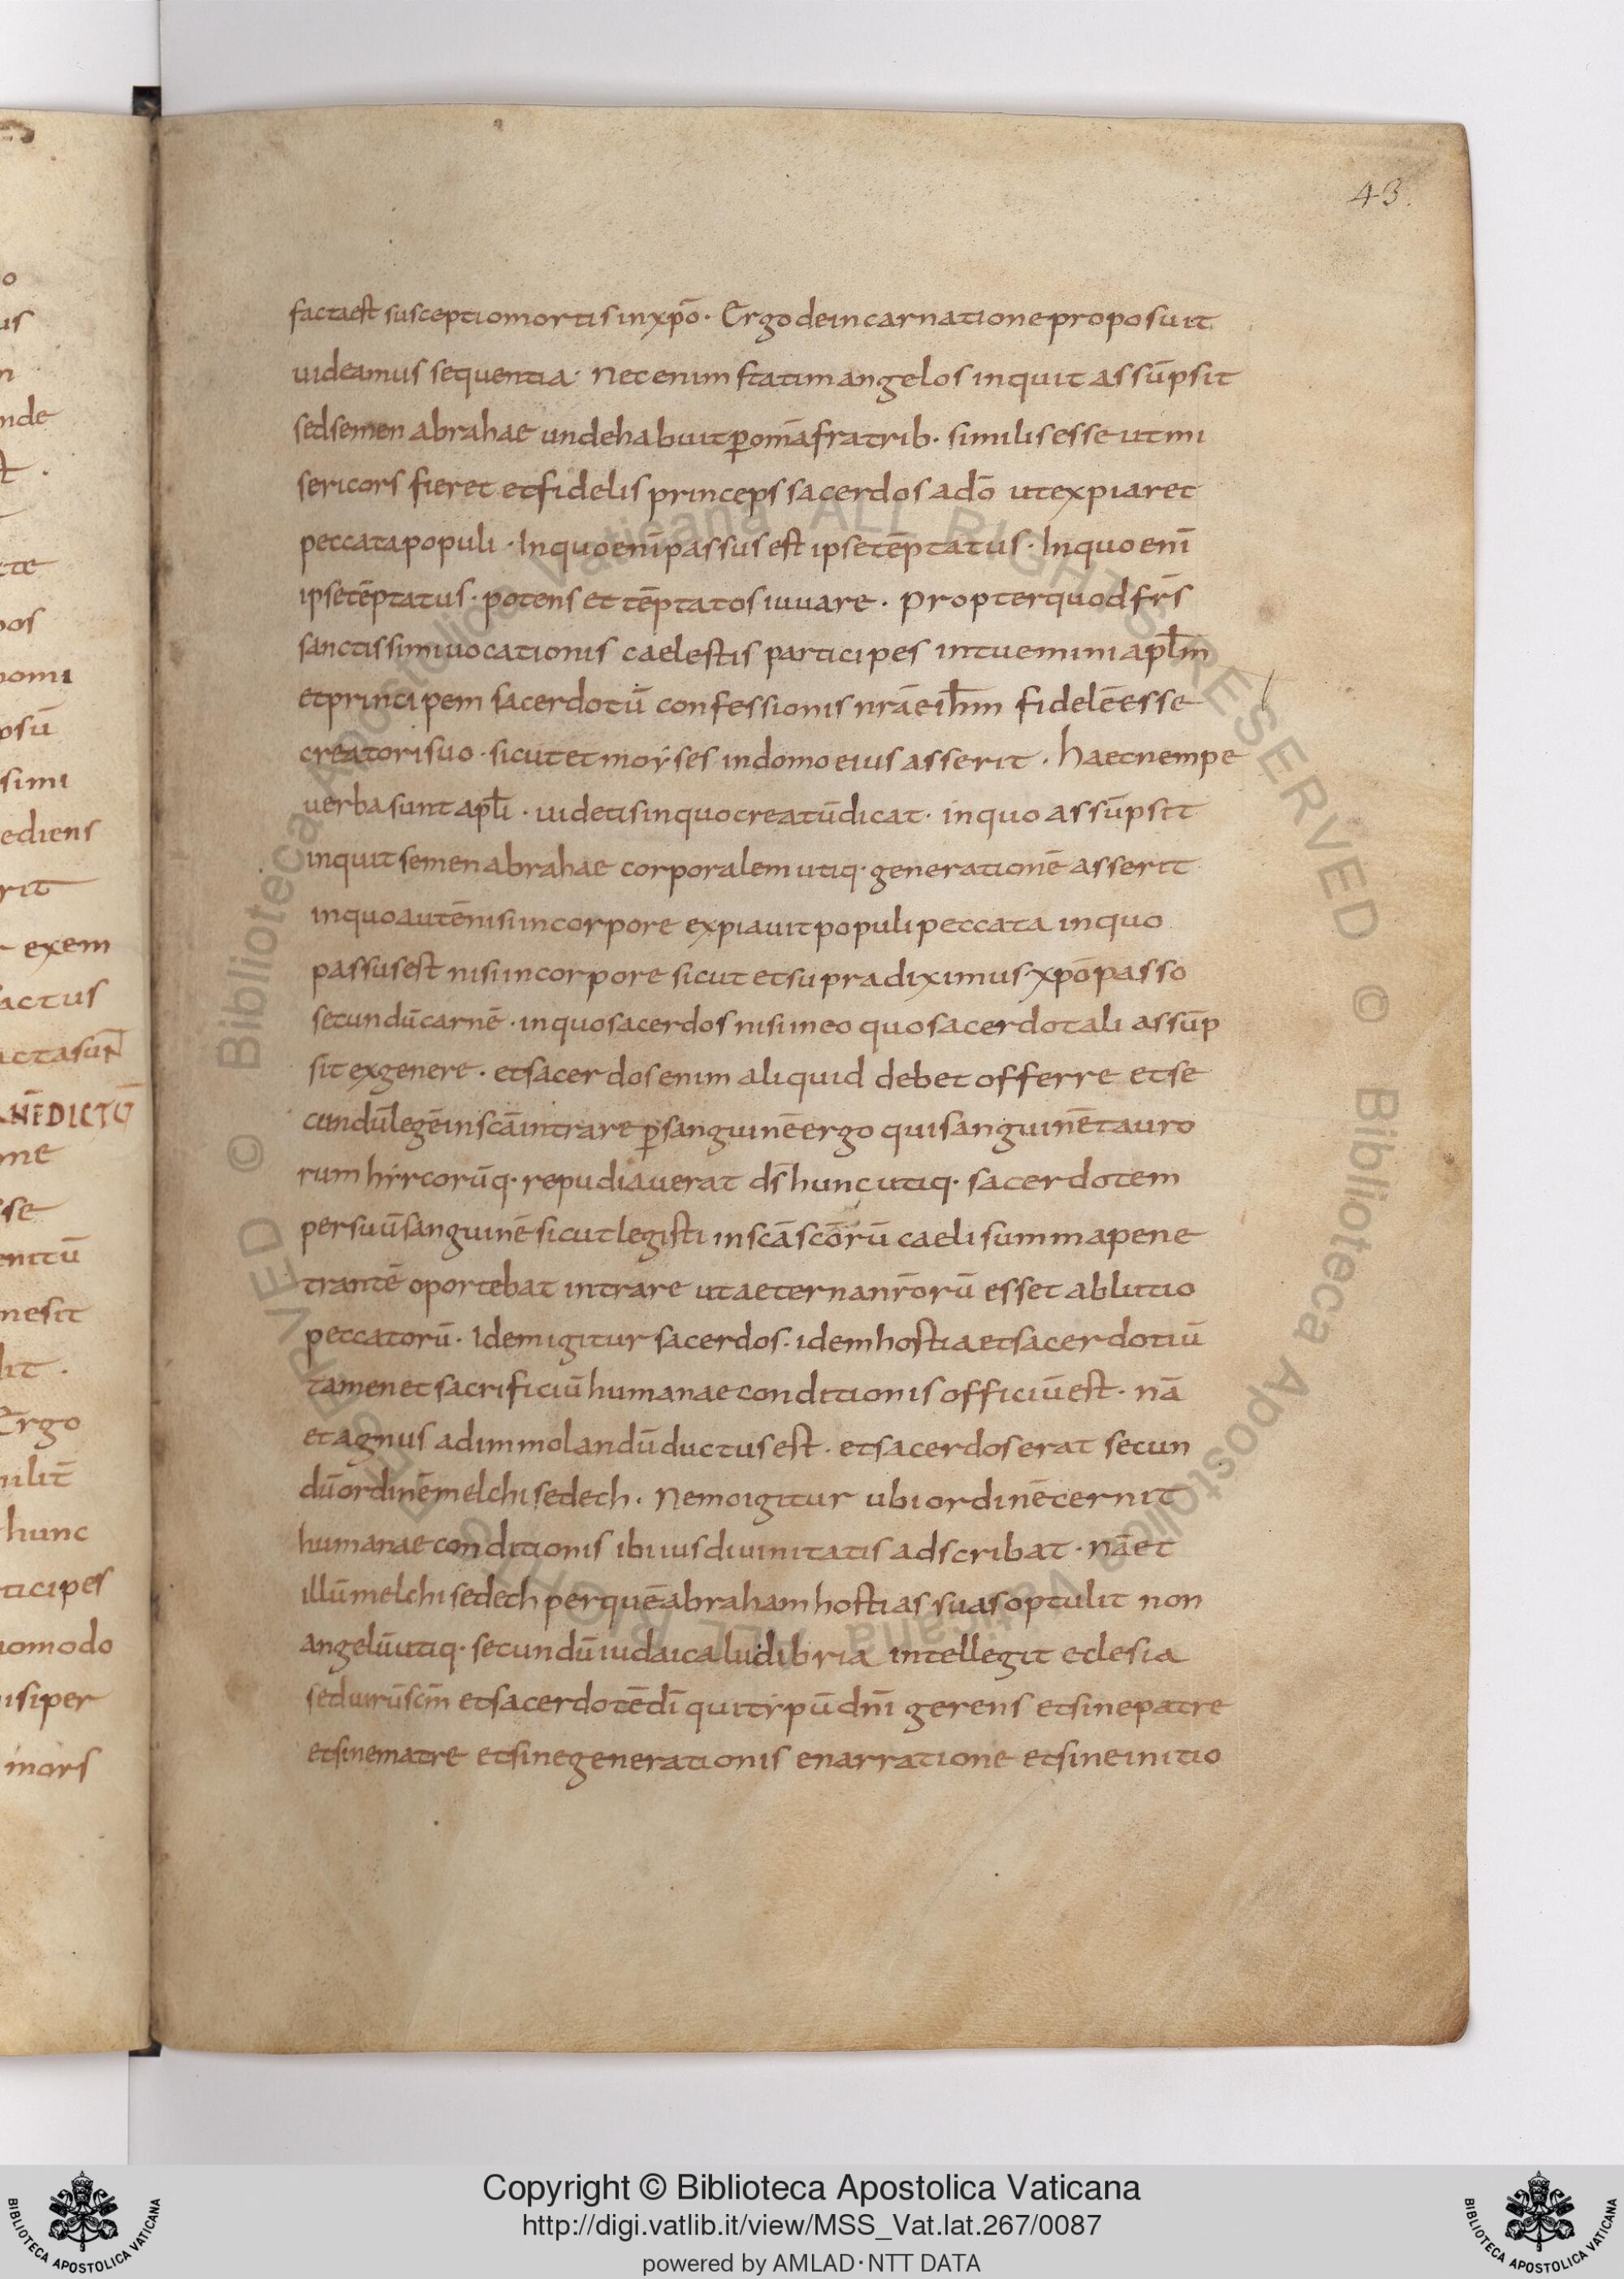 43.
factaest susceptio mortis in xpō· Ergo de incarnatione proposuit
uideamus sequentia· Nec enim statim angelos inquit assūpsit
sed semen abrahae unde habuit p̲ omā fratrib· similis esse ut mi
sericors fieret et fidelis princeps sacerdos ad dō ut expiaret
peccata populi· In quo enī passus est ipse tēptatus· In quo enī
ipse tēptatus· potens et tēptatos iuuare· propter quod frs̄
sanctissimi uocationis caelestis participes intuemini apl̄m
et principem sacerdotū confessionis nrāe ih̄m fidelē esse
creatori suo· sicut et moẏses in domo eius asserit· haec nempe
uerba sunt apl̄i· uidetis in quo creatū dicat· in quo assūpsit
inquit semen abrahae corporalem utiq· generationē asserit
in quo autē nisi in corpore expiauit populi peccata in quo
passus est nisi in corpore sicut et supra diximus xpō passo
secundū carnē· in quo sacerdos nisi in eo quo sacerdotali assūp
sit ex genere· et sacerdos enim aliquid debet offerre et se
cundū legē in scā intrare p̲ sanguinē ergo qui sanguinē tauro
rum hircorūq· repudiauerat ds̄ hunc utiq· sacerdotem
per suū sanguinē sicut legisti in scā scōrū caeli summa pene
trantē oportebat intrare ut aeterna nr̄orū esset ablutio
peccatorū· Idem igitur sacerdos· idem hostia et sacerdotiū
tamen et sacrificiū humanae conditionis officiū est· nā
et agnus ad immolandū ductus est· et sacerdos erat secun
dū ordinē melchisedech· Nemo igitur ubi ordinē cernit
humanae conditionis ibi ius diuinitatis adscribat· nā et
illū melchisedech per quē abraham hostias suas optulit non
angelū utiq· secundū iudaica ludibria intellegit eclesia
sed uirū scm̄ et sacerdotē dī qui tẏpū dnī gerens et sine patre
et sine matre et sine generationis enarratione et sine initio
Copyright © Biblioteca Apostolica Vaticana
http://digi.vatlib.it/view/MSS_Vat.lat.267/0087
powered by AMLAD·NTT DATA